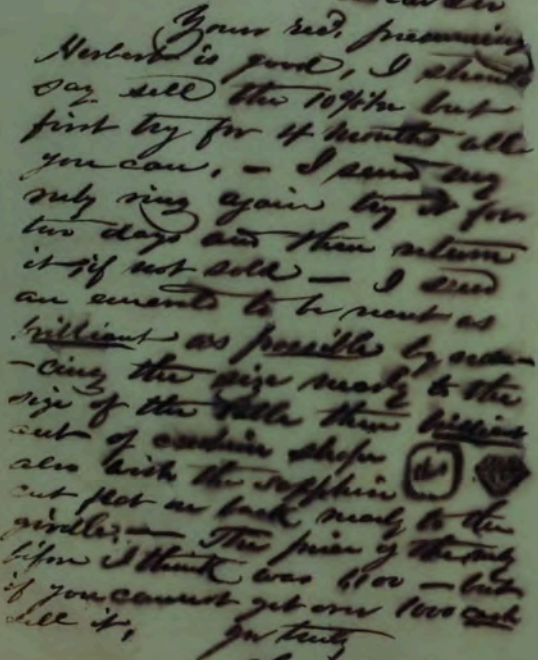 Yours recd. presuming
Herbert is good, I should
say sell the 10 % but
first try for 4 months all
you can. — I send my
ruby ring again try it for
two days and then return
it if not sold — I send
an emerald to be recut as
brilliant as possible by redu-
-cing the size nearly to the
size of the table then brilliant
cut of cushion shape
also with the sapphire
cut flat on back nearly to the
girdle. — The price of the ruby
before I think was 1100 — but
if you cannot get over 1000 cash
sell it,
yrs truly